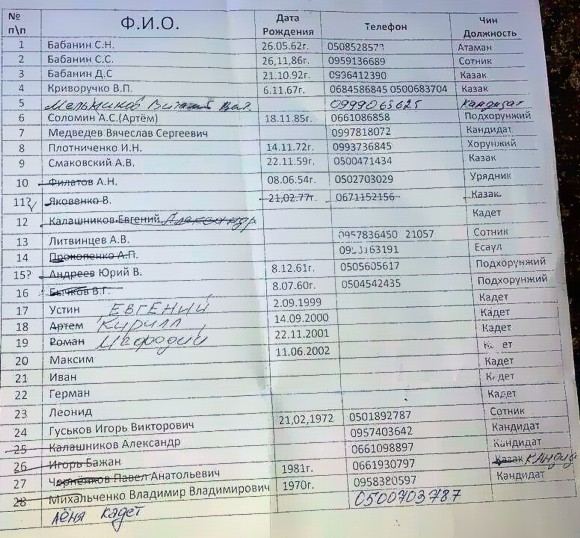 № п\п Ф.И.О. Дата Рождения Телефон Чин Должность
1 Бабанин С.Н. 26.05.62г. 0508528573 Атаман
2 Бабанин С.С. 26,11,86г. 0959136689 Сотник
3 Бабанин Д.С 21.10.92г. 0936412390 Казак
4 Криворучко В.П. 6.11.67г. 0684586845 0500683704 Казак
5 Мельников 0999063625 Кандидат
6 Соломин А.С.(Артём) 18.11.85г. 0661086858 Подхорунжий
7 Медведев Вячеслав Сергеевич 0997818072 Кандидат
8 Плотниченко И.Н. 14.11.72г. 0993736845 Хорунжий
9 Смаковский А.В. 22.11.59г. 0500471434 Казак
10 Филатов А.Н. 08.06.54г. 0502703029 Урядник
11? Яковенко В. 21,02.77г. 0671152156 Казак
12 Калашников Евгений Кадет
13 Литвинцев А.В. 0957836450 21057 Сотник
14 Прокопенко А.П. Есаул
15? Андреев Юрий В. 8.12.61г. 0505605617 Подхорунжий
16 Бычков В.Г. 8.07.60г. 0504542435 Подхорунжий
17 Устин ЕВГЕНИЙ 2.09.1999 Кадет
18 Артем Кирилл 14.09.2000 Кадет
19 Роман Мефодий 22.11.2001 Кадет
20 Максим 11.06.2002 Кадет
21 Иван Кадет
22 Герман Кадет
23 Леонид Кадет
24 Гуськов Игорь Викторович 21,02,1972 0501892787 Сотник
25 Калашников Александр 0957403642 Кандидат
26 Игорь Бажан 0661098897 Кандидат
27 Анатольевич 1981г. 0661930797 Казак
28 Михальченко Владимир Владимирович 1970г. 0958380597 Кандидат
Лёня Кадет 0500703787